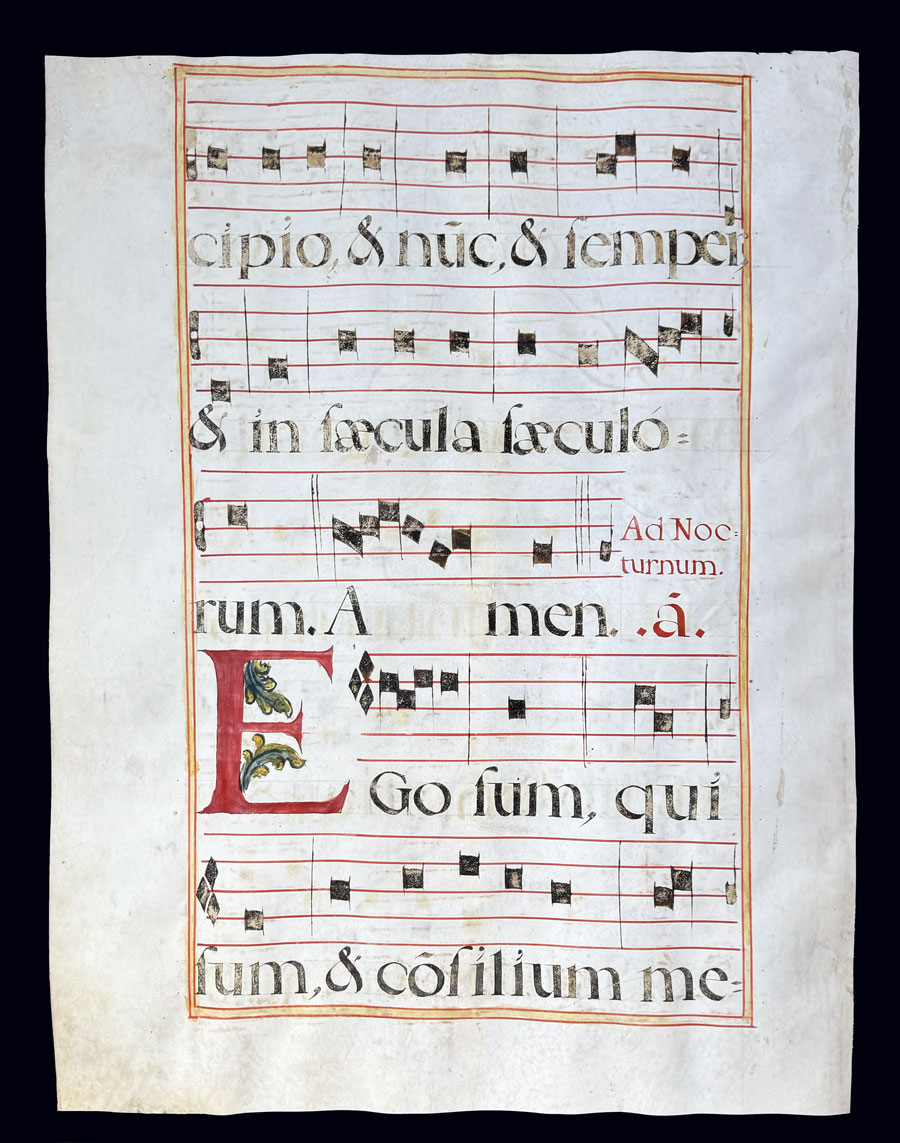 cipio, & nūc, & ſemper,
& in ſæcula ſæculó=
rum. A men. .ā.
Ad Noc=
turnum.
EGo ſum, qui
ſum, & cōſilium me=